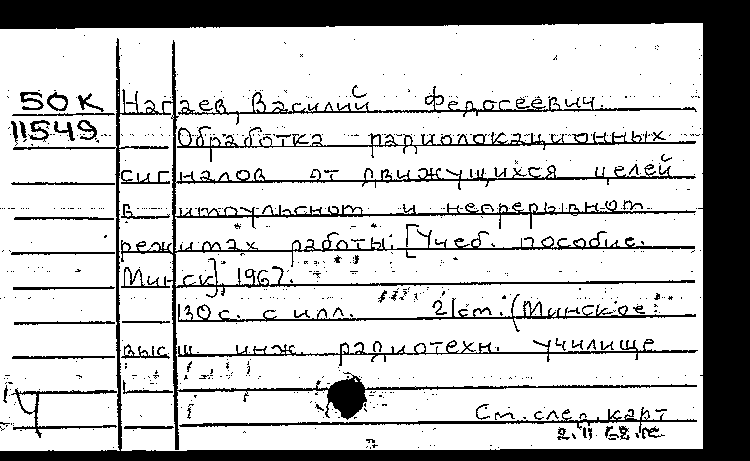 50К Нагаев, Василий Федосеевич.
11549 Обработка радиолокационных
сигналов от движущихся целей
в импульсном и непрерывном
режимах работы. [Учеб. пособие.
Минск], 1967.
130 с. с илл. 21см. (Минское
высш. инж. радиотехн. училище
Ч
См. след. карт